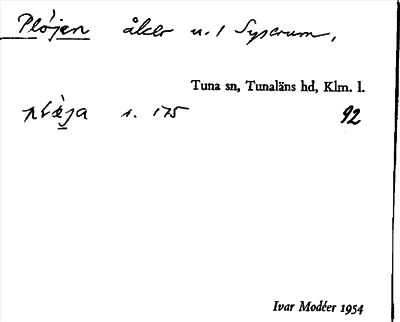 Plöjen åker u. 1 Syserum,
Tuna sn, Tunaläns hd, Klm. l.
s. 175 92
Ivar Modéer 1954